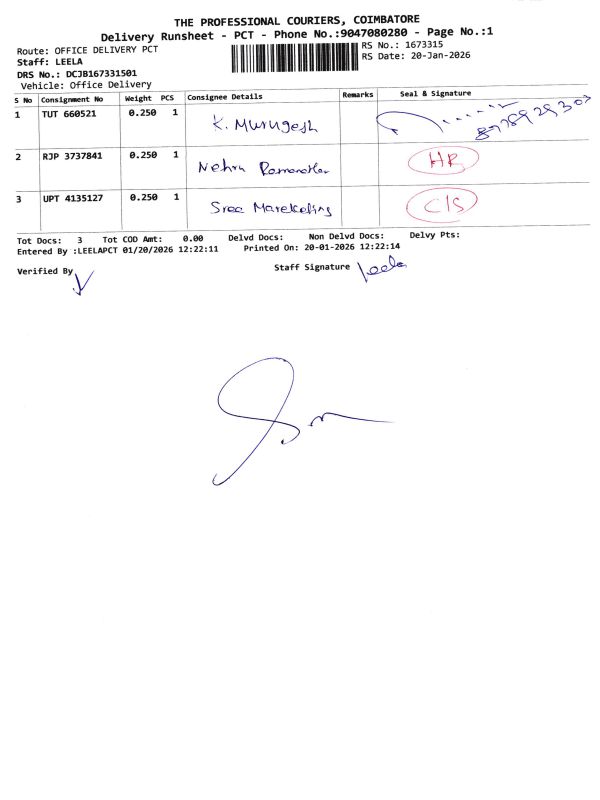 THE PROFESSIONAL COURIERS, COIMBATORE
Delivery Runsheet - PCT - Phone No.:9047080280 - Page No.:1
Route: OFFICE DELIVERY PCT
RS No.: 1673315
Staff: LEELA
RS Date: 20-Jan-2026
DRS No.: DCJB167331501
Vehicle: Office Delivery
S No Consignment No Weight PCS Consignee Details Remarks Seal & Signature
1 TUT 660521 0.250 1 K. Murugesh
2 RJP 3737841 0.250 1 Nehru HR
3 UPT 4135127 0.250 1 Sree Mareketing C/S
Tot Docs: 3 Tot COD Amt: 0.00 Delvd Docs: Non Delvd Docs: Delvy Pts:
Entered By :LEELAPCT 01/20/2026 12:22:11 Printed On: 20-01-2026 12:22:14
Verified By Staff Signature leela